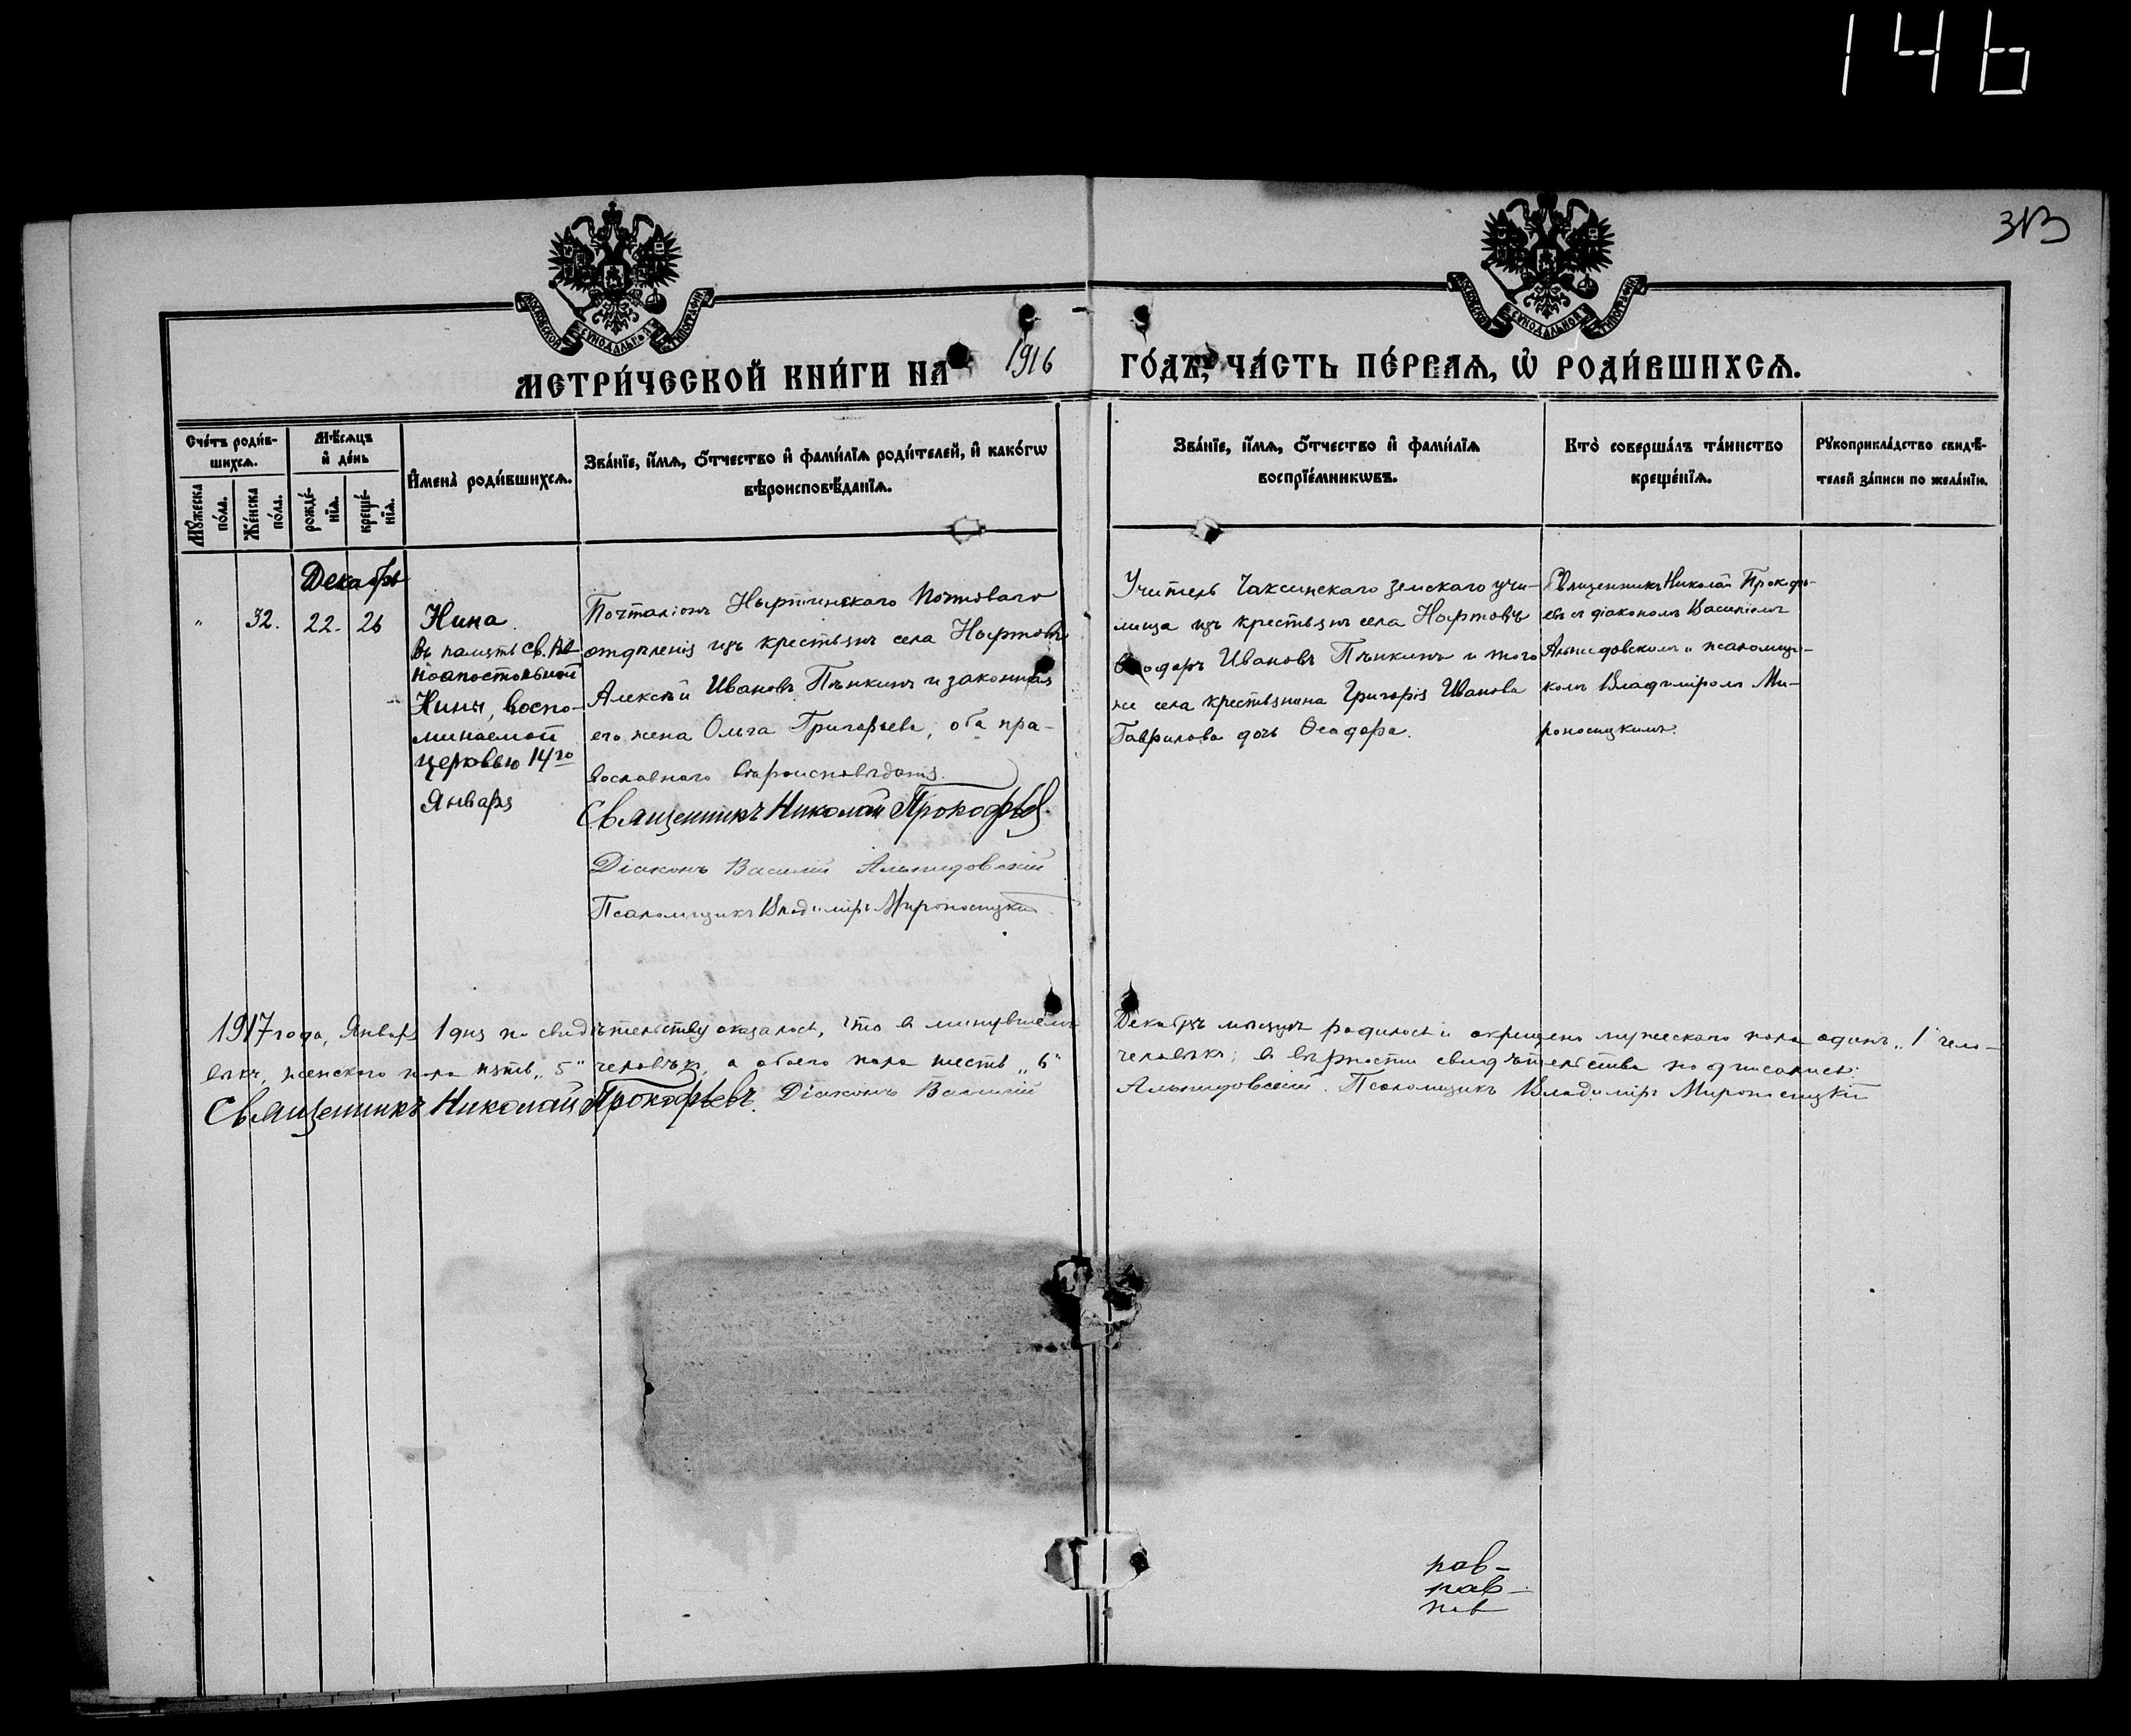 146
313
МОСКОВСКОЙ СѴНОДАЛЬНОЙ ТИПОГРАФІИ
МОСКОВСКОЙ СѴНОДАЛЬНОЙ ТИПОГРАФІИ
МЕТРИ́ЧЕСКОЙ КНИ́ГИ НА 1916 ГО́ДЪ, ЧА́СТЬ ПЕ́РВАЯ, Ѡ РОДИ́ВШИХСЯ.
Сче́тъ роди́в-
шихся.
Мꙋ́жеска по́ла.
Же́нска по́ла.
Мѣ́сяцъ и де́нь
рожде́-
нїя.
креще́-
нїя.
Имена̀ роди́вшихся.
Зва́нїе, и́мя, о́тчество и фами́лїя роди́телей, и како́гѡ
вѣроисповѣ́данїя.
Зва́нїе, и́мя, о́тчество и фами́лїя
воспрїе́мникѡвъ.
Кто̀ соверша́лъ та́инство
креще́нїя.
Рꙋкоприкла́дство свидѣ́-
телей за́писи по жела́нїю.
Декабрь
" 32. 22. 26
Нина
Въ память св. Рав-
ноапостольной
Нины, воспо-
минаемой
церковью 14го
Января
Почталіонъ Ныртинскаго Почтоваго
отдѣленія изъ крестьянъ села Ныртовъ
Алексѣй Ивановъ Пѣнкинъ и законная
его жена Ольга Григорьева, оба пра-
вославнаго вѣроисповѣданія.
Священникъ Николай Прокофьев.
Діаконъ Василій Альпидовскій
Псаломщикъ Владиміръ Мироносицкій.
Учитель Чаксинскаго земскаго учи-
лища изъ крестьянъ села Ныртовъ
Ѳеодоръ Ивановъ Пѣнкинъ и того
же села крестьянина Григорія Иванова
Гаврилова дочь Ѳеодора.
Священникъ Николай Прокофь-
евъ съ діакономъ Василіемъ
Альпидовскимъ и псаломщи-
комъ Владиміромъ Ми-
роносицкимъ.
1917 года, Января 1 дня по свидѣтельству оказалось, что въ минувшемъ Декабрѣ мѣсяцѣ родилось и окрещено мужескаго пола одинъ „1" чело-
вѣкъ, женскаго пола пять „5" человѣкъ, а обоего пола шесть „6" человѣкъ; въ вѣрности свидѣтельства подписались:
Священникъ Николай Прокофьевъ. Діаконъ Василій Альпидовскій. Псаломщикъ Владиміръ Мироносицкій
рав-
рав-